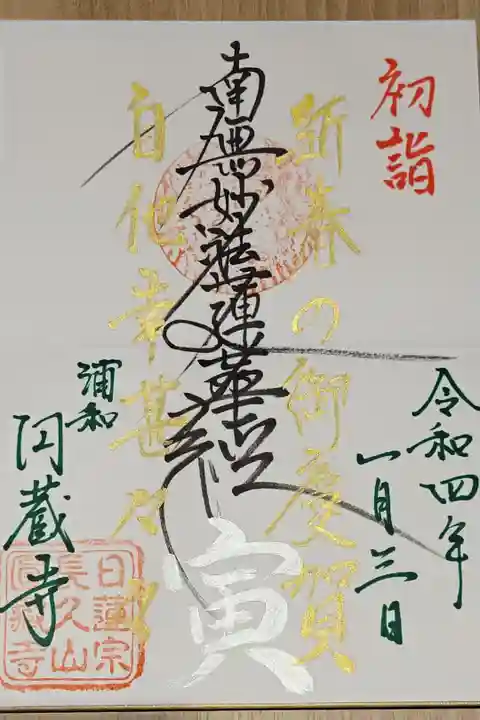 初詣
新春の御慶賀
南無妙法蓮華経
自他幸甚々々
寅
令和四年
一月三日
浦和
円蔵寺
日蓮宗
長久山
円蔵寺